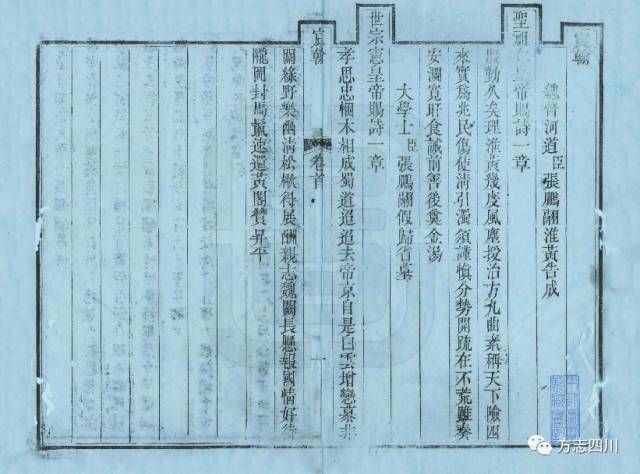 宸翰
總督河道臣張鵬翮淮黃告成
聖祖仁皇帝賜詩一章
勤久矣理淮黃幾度風塵授治方九曲素稱天下險四
來實為兆民傷使清引濁須謹慎分勢開疏在不荒雖奏
安瀾寬旰食誡前善後奠金湯
大學士臣張鵬翮假歸省墓
世宗憲皇帝賜詩一章
孝思忠悃木相成蜀道迢迢去帝京自是白雲增戀慕非
宸翰
卷首
一
關綠野樂幽清松楸得展酬親志魏闕長懸報國情好待
隴岡封馬鬣速還黃閣贊昇平
方志四川